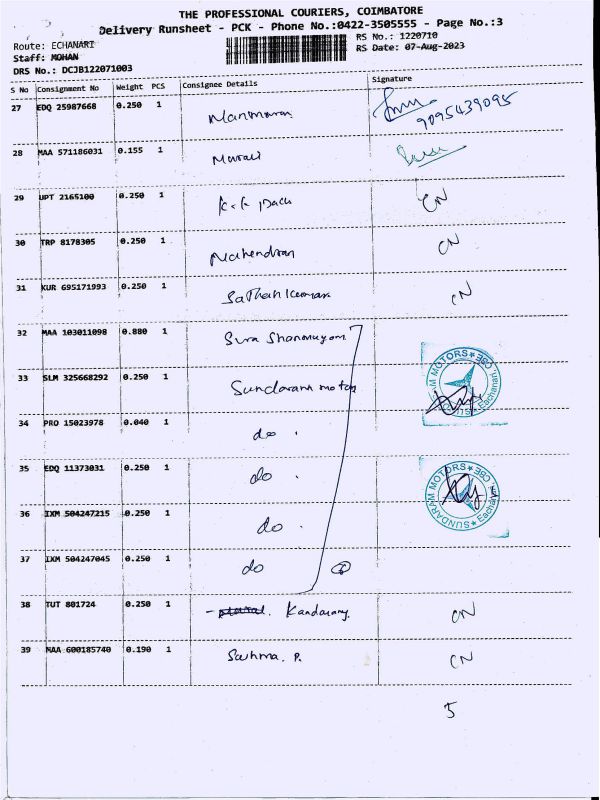 THE PROFESSIONAL COURIERS, COIMBATORE
Delivery Runsheet - PCK - Phone No.:0422-3505555 - Page No.:3
Route: ECHANARI
RS No.: 1220710
Staff: MOHAN
RS Date: 07-Aug-2023
DRS No.: DCJB122071003
S No Consignment No Weight PCS Consignee Details Signature
27 EDQ 25987668 0.250 1 Manimaran 9095439095
28 MAA 571186031 0.155 1 Murali
29 UPT 2165100 0.250 1 CN
30 TRP 8178305 0.250 1 Mahendran CN
31 KUR 695171993 0.250 1 Sathankumar CN
32 MAA 103011098 0.880 1 Siva Shanmugam
33 SLM 325668292 0.250 1 Sundaram motors
34 PRO 15023978 0.040 1 do .
35 EDQ 11373031 0.250 1 do .
36 IXM 504247215 0.250 1 do .
37 IXM 504247045 0.250 1 do 
SUNDARAM MOTORS ★ CBE Eachanari,
SUNDARAM MOTORS ★ CBE Eachanari
38 TUT 801724 0.250 1 CN
39 MAA 600185740 0.190 1 P. CN
5